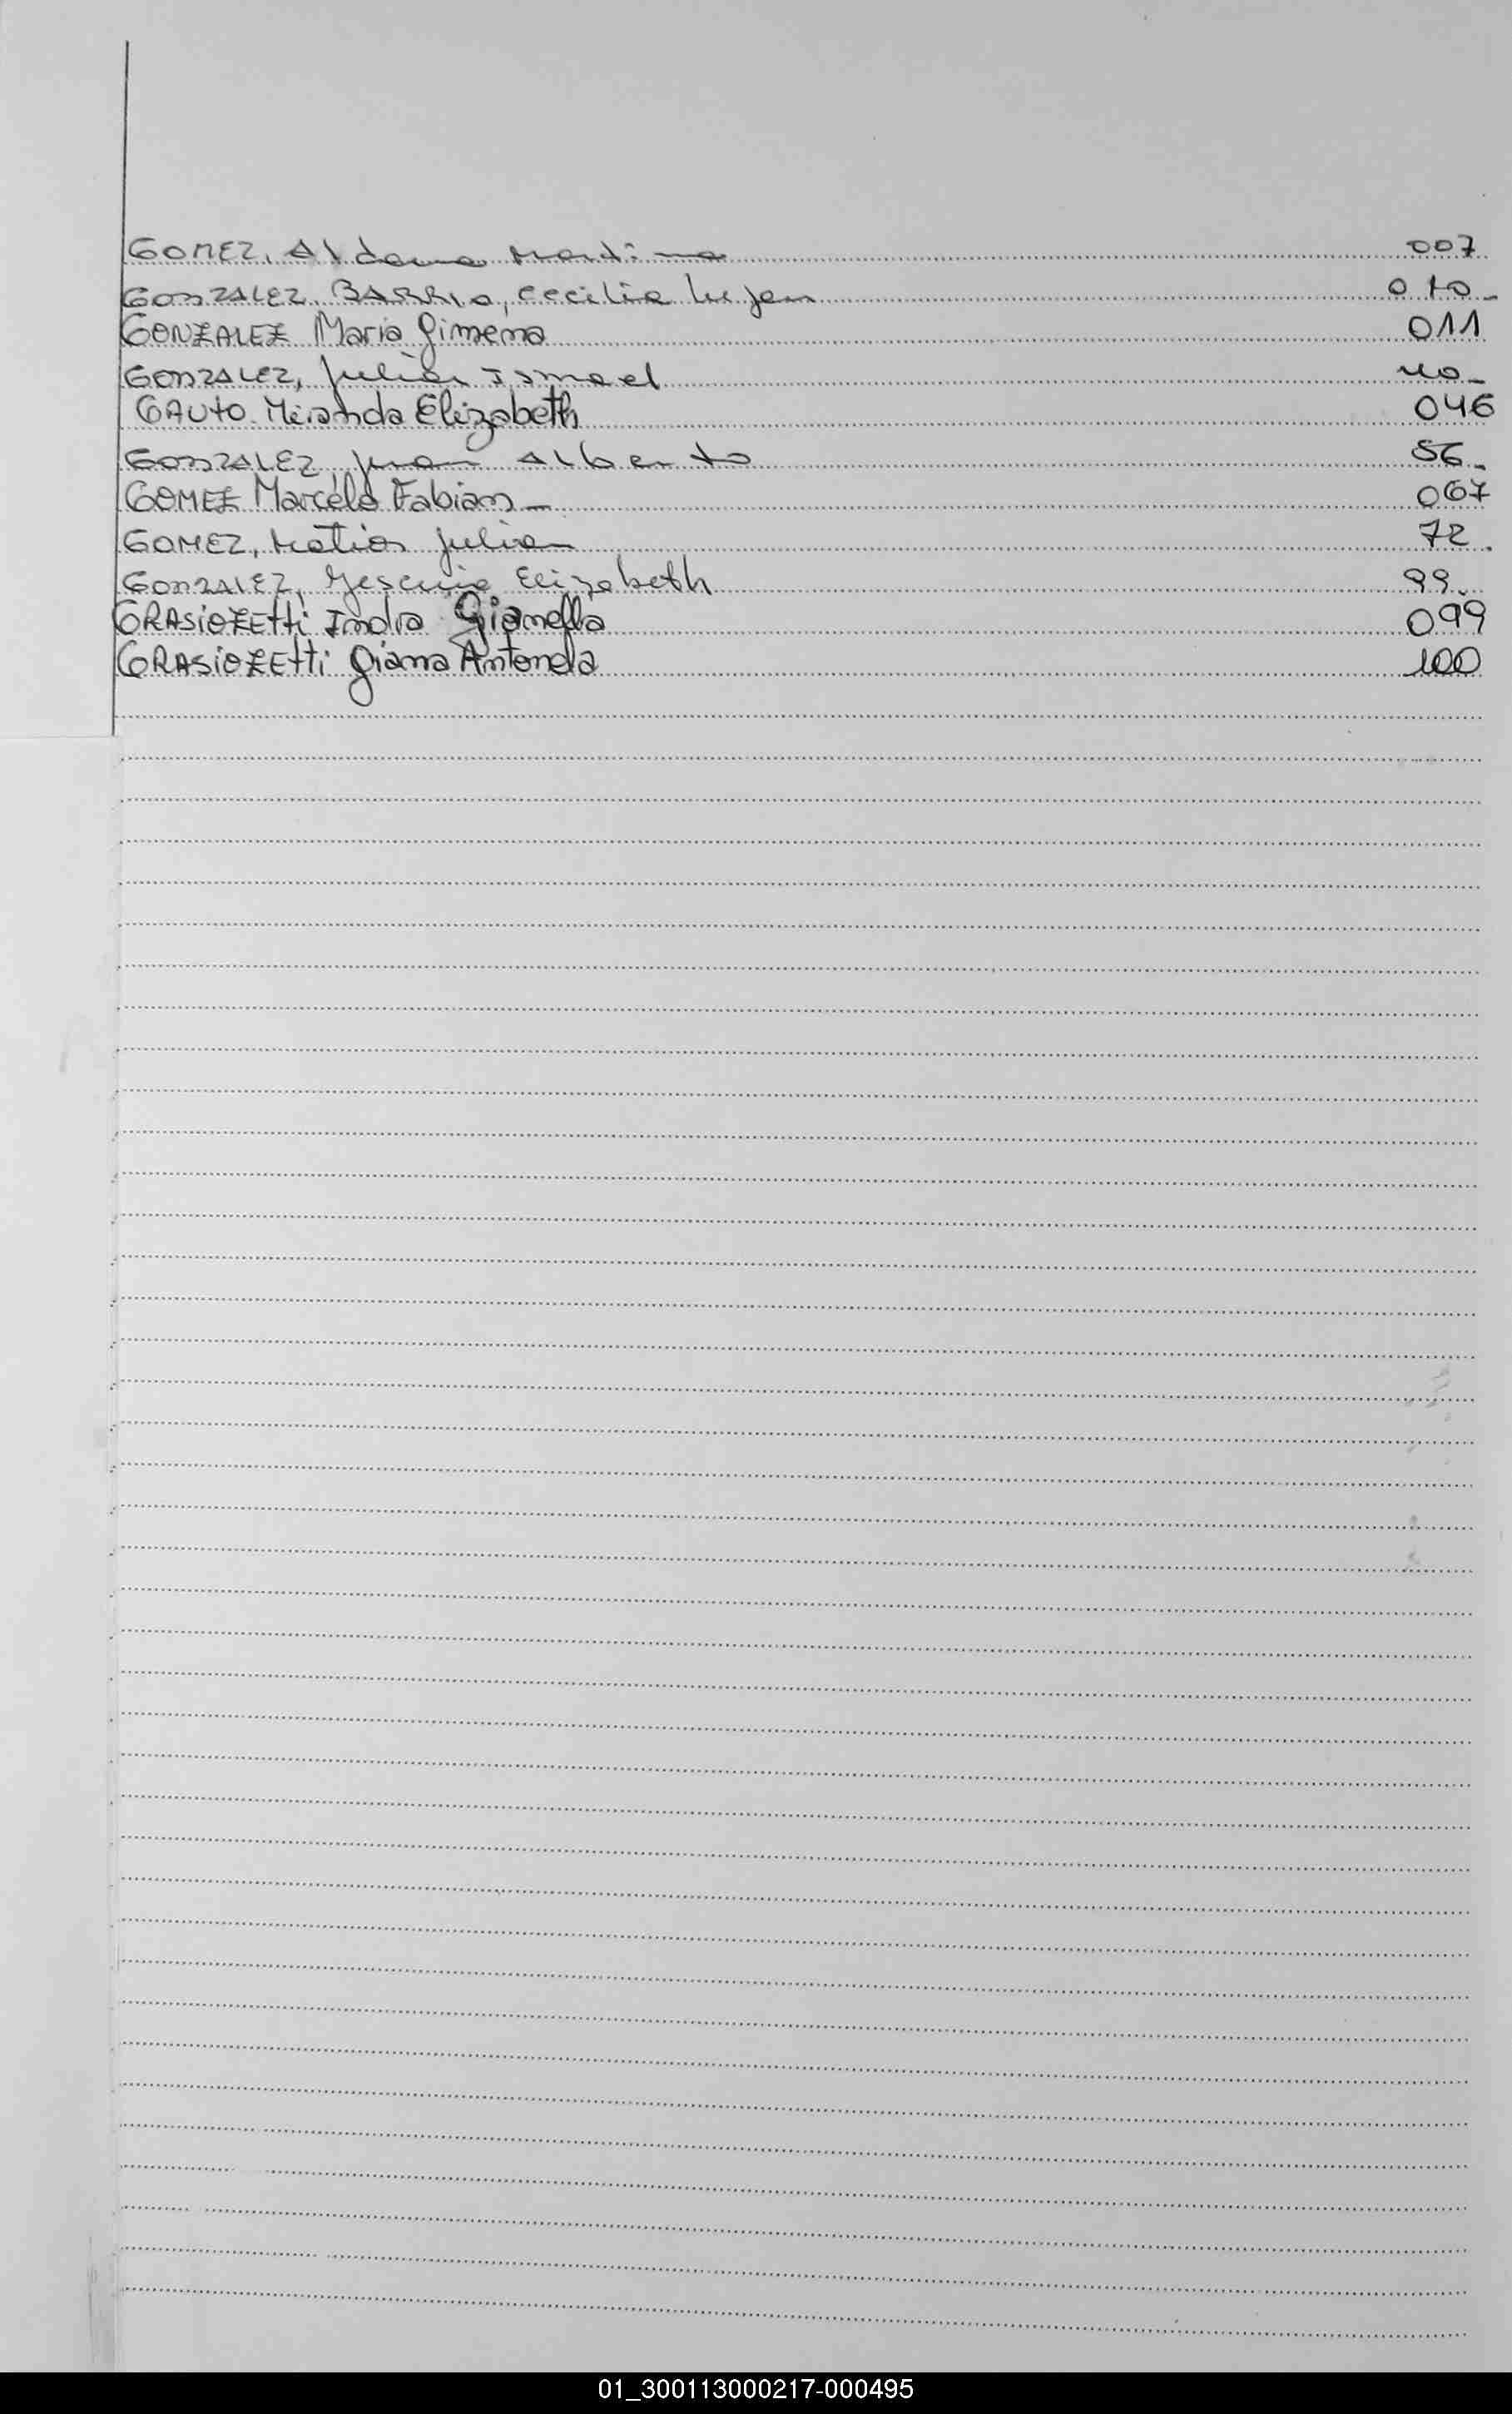 GOMEZ, Aldana Martina 007
GONZALEZ BARRIO, Cecilia Lujan 010_
GONZALEZ Maria Gimena 011
GONZALEZ, Julián Ismael 40_
GAUTO Miranda Elizabeth 046
GONZALEZ Juan Alberto 56_
GOMEZ Marcelo Fabian_ 067
GOMEZ, Matias Julian 72.
GONZALEZ, Yesenia Elizabeth 99.
GRASIOZEtti Indra Gianella 099
GRASIOZEtti Giana Antonela 100
01_300113000217-000495